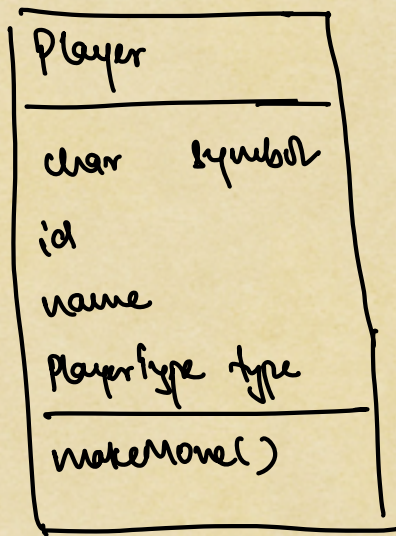 Player
char symbol
id
name
PlayerType type
makeMove()